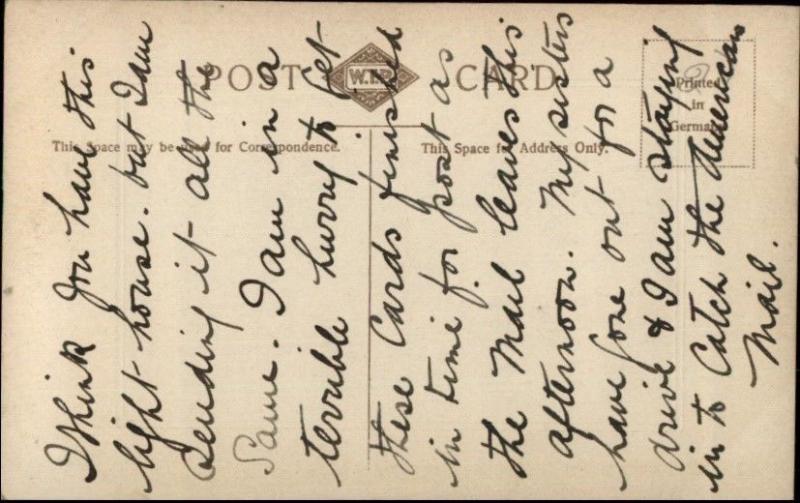 POST CARD
W.I.P.
This Space may be used for Correspondence.
This Space for Address Only.
Printed
in
Germany
I think you have this
light house. but I am
sending it all the
same. I am in a
terrible hurry to get
these Cards finished
in time for post as
the Mail leaves this
afternoon. My sisters
have gone out for a
drive & I am staying
in to Catch the American
Mail.